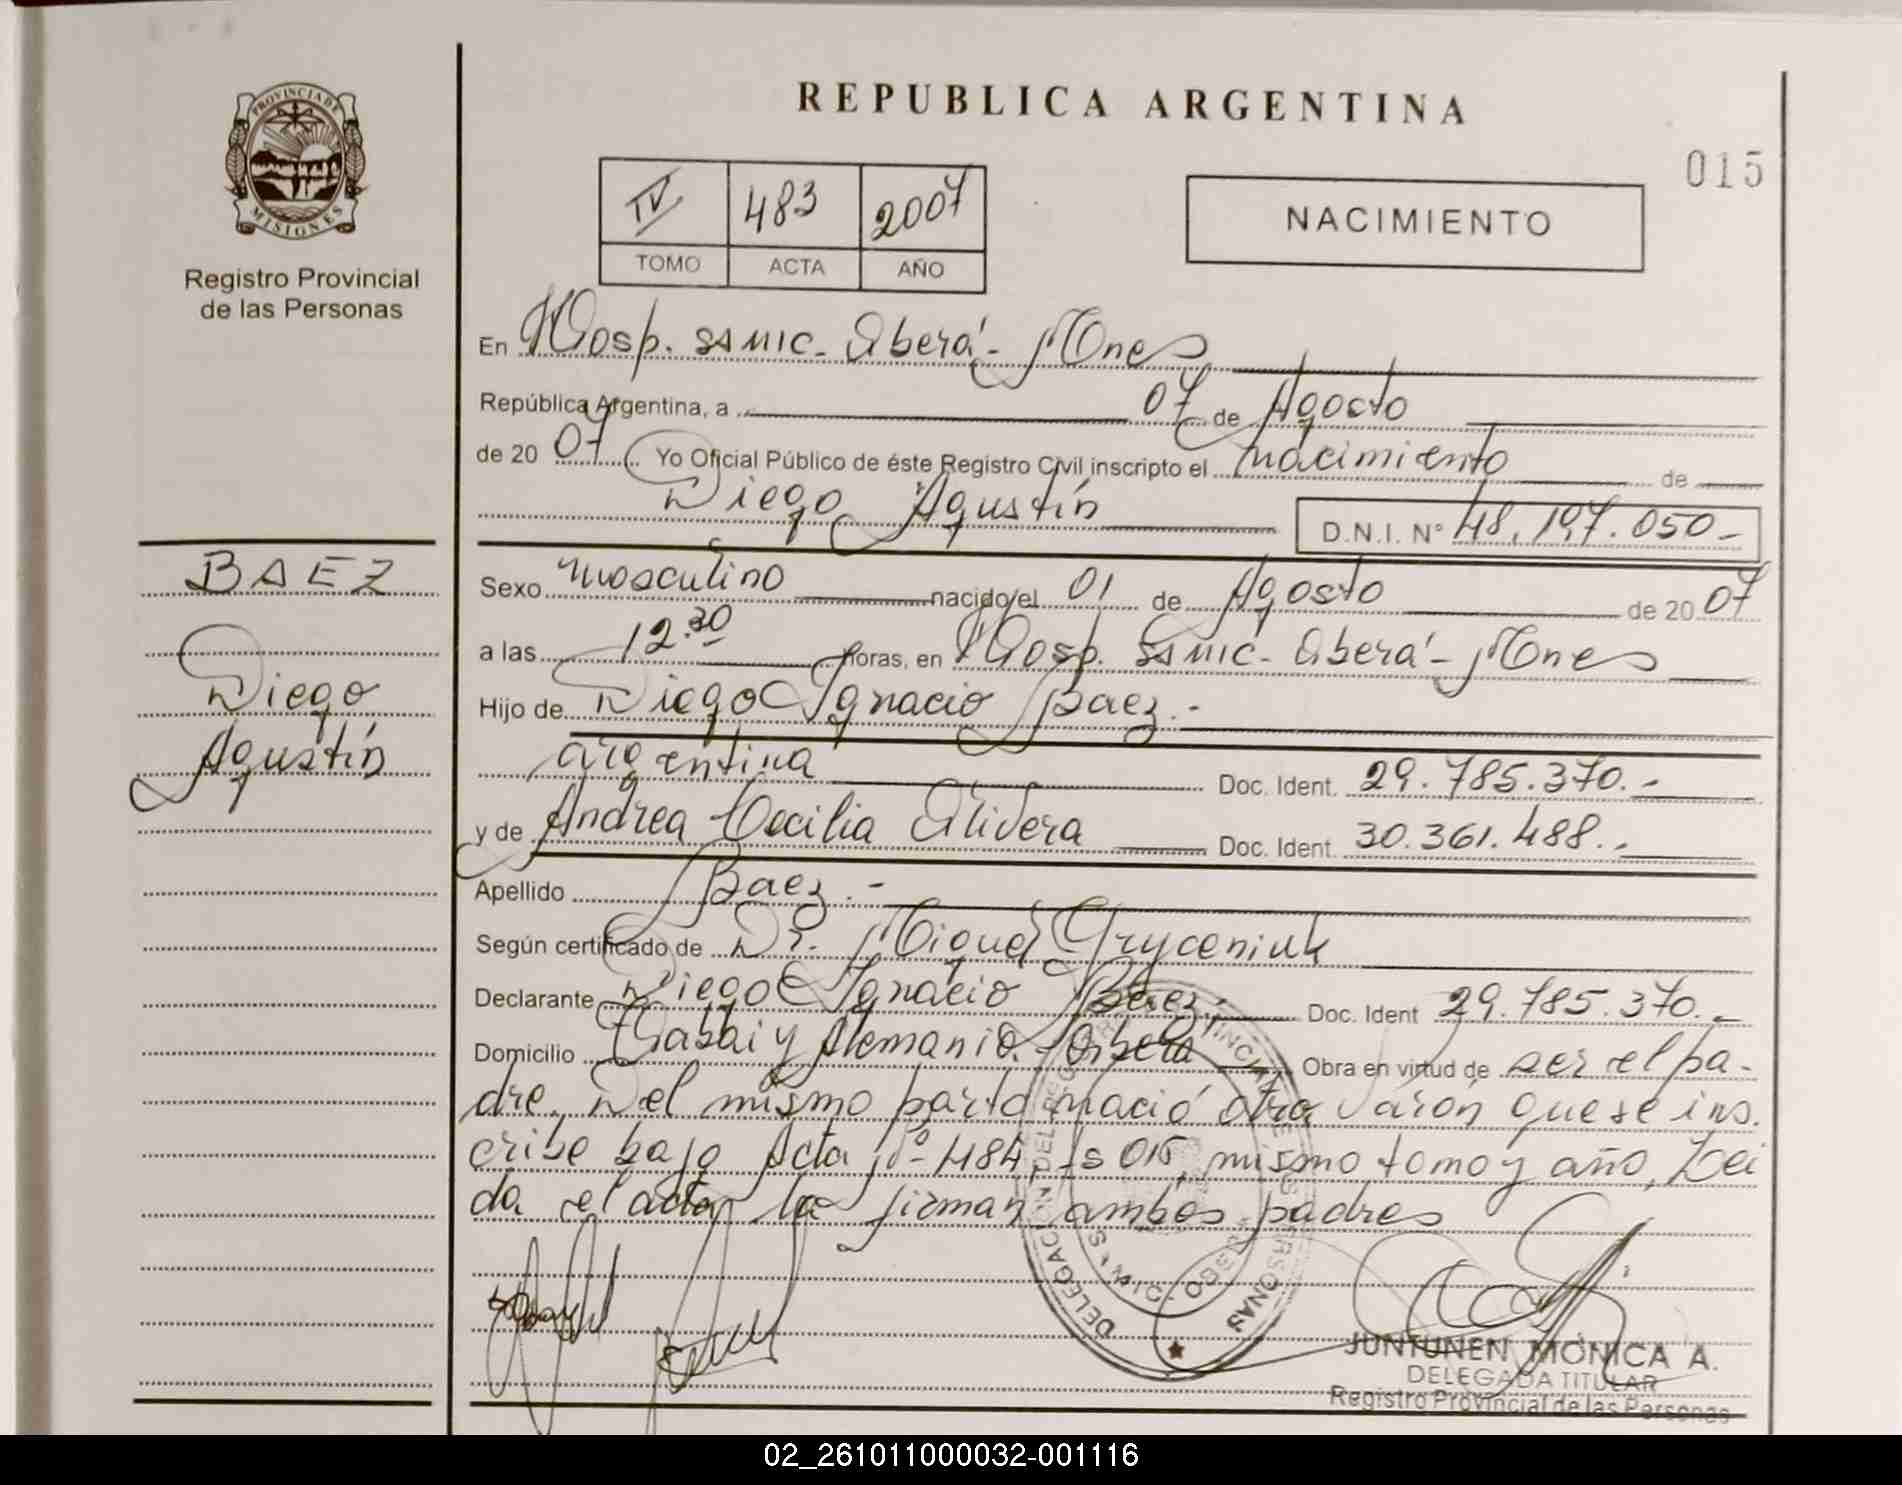 REPUBLICA ARGENTINA
015
PROVINCIA DE
MISIONES
Registro Provincial
de las Personas
IV 483 2007
TOMO ACTA AÑO
NACIMIENTO
En Hosp. SAMIC - Oberá - Mnes
República Argentina, a 07 de Agosto
de 20 07 Yo Oficial Público de éste Registro Civil inscripto el nacimiento de
Diego Agustín D.N.I. N° 48.197.050.-
BAEZ
Diego
Agustín
Sexo masculino nacido/el 01 de Agosto de 20 07
a las 12.30 horas, en Hosp. SAMIC - Oberá - Mnes
Hijo de Diego Ignacio Baez.-
argentina Doc. Ident. 29.785.370.-
y de Andrea Cecilia Olivera Doc. Ident. 30.361.488.-
Apellido Baez.-
Según certificado de Dr. Miguel Gryceniuk
Declarante Diego Ignacio Baez.- Doc. Ident 29.785.370.-
Domicilio y Alemania. Oberá Obra en virtud de ser el pa-
dre. Del mismo parto nació otro varón que se ins.
cribe bajo Acta N° 484, fs 015, mismo tomo y año, Lei
da el acta la firman ambos padres
JUNTUNEN MONICA A.
DELEGADA TITULAR
Registro Provincial de las Personas
02_261011000032-001116